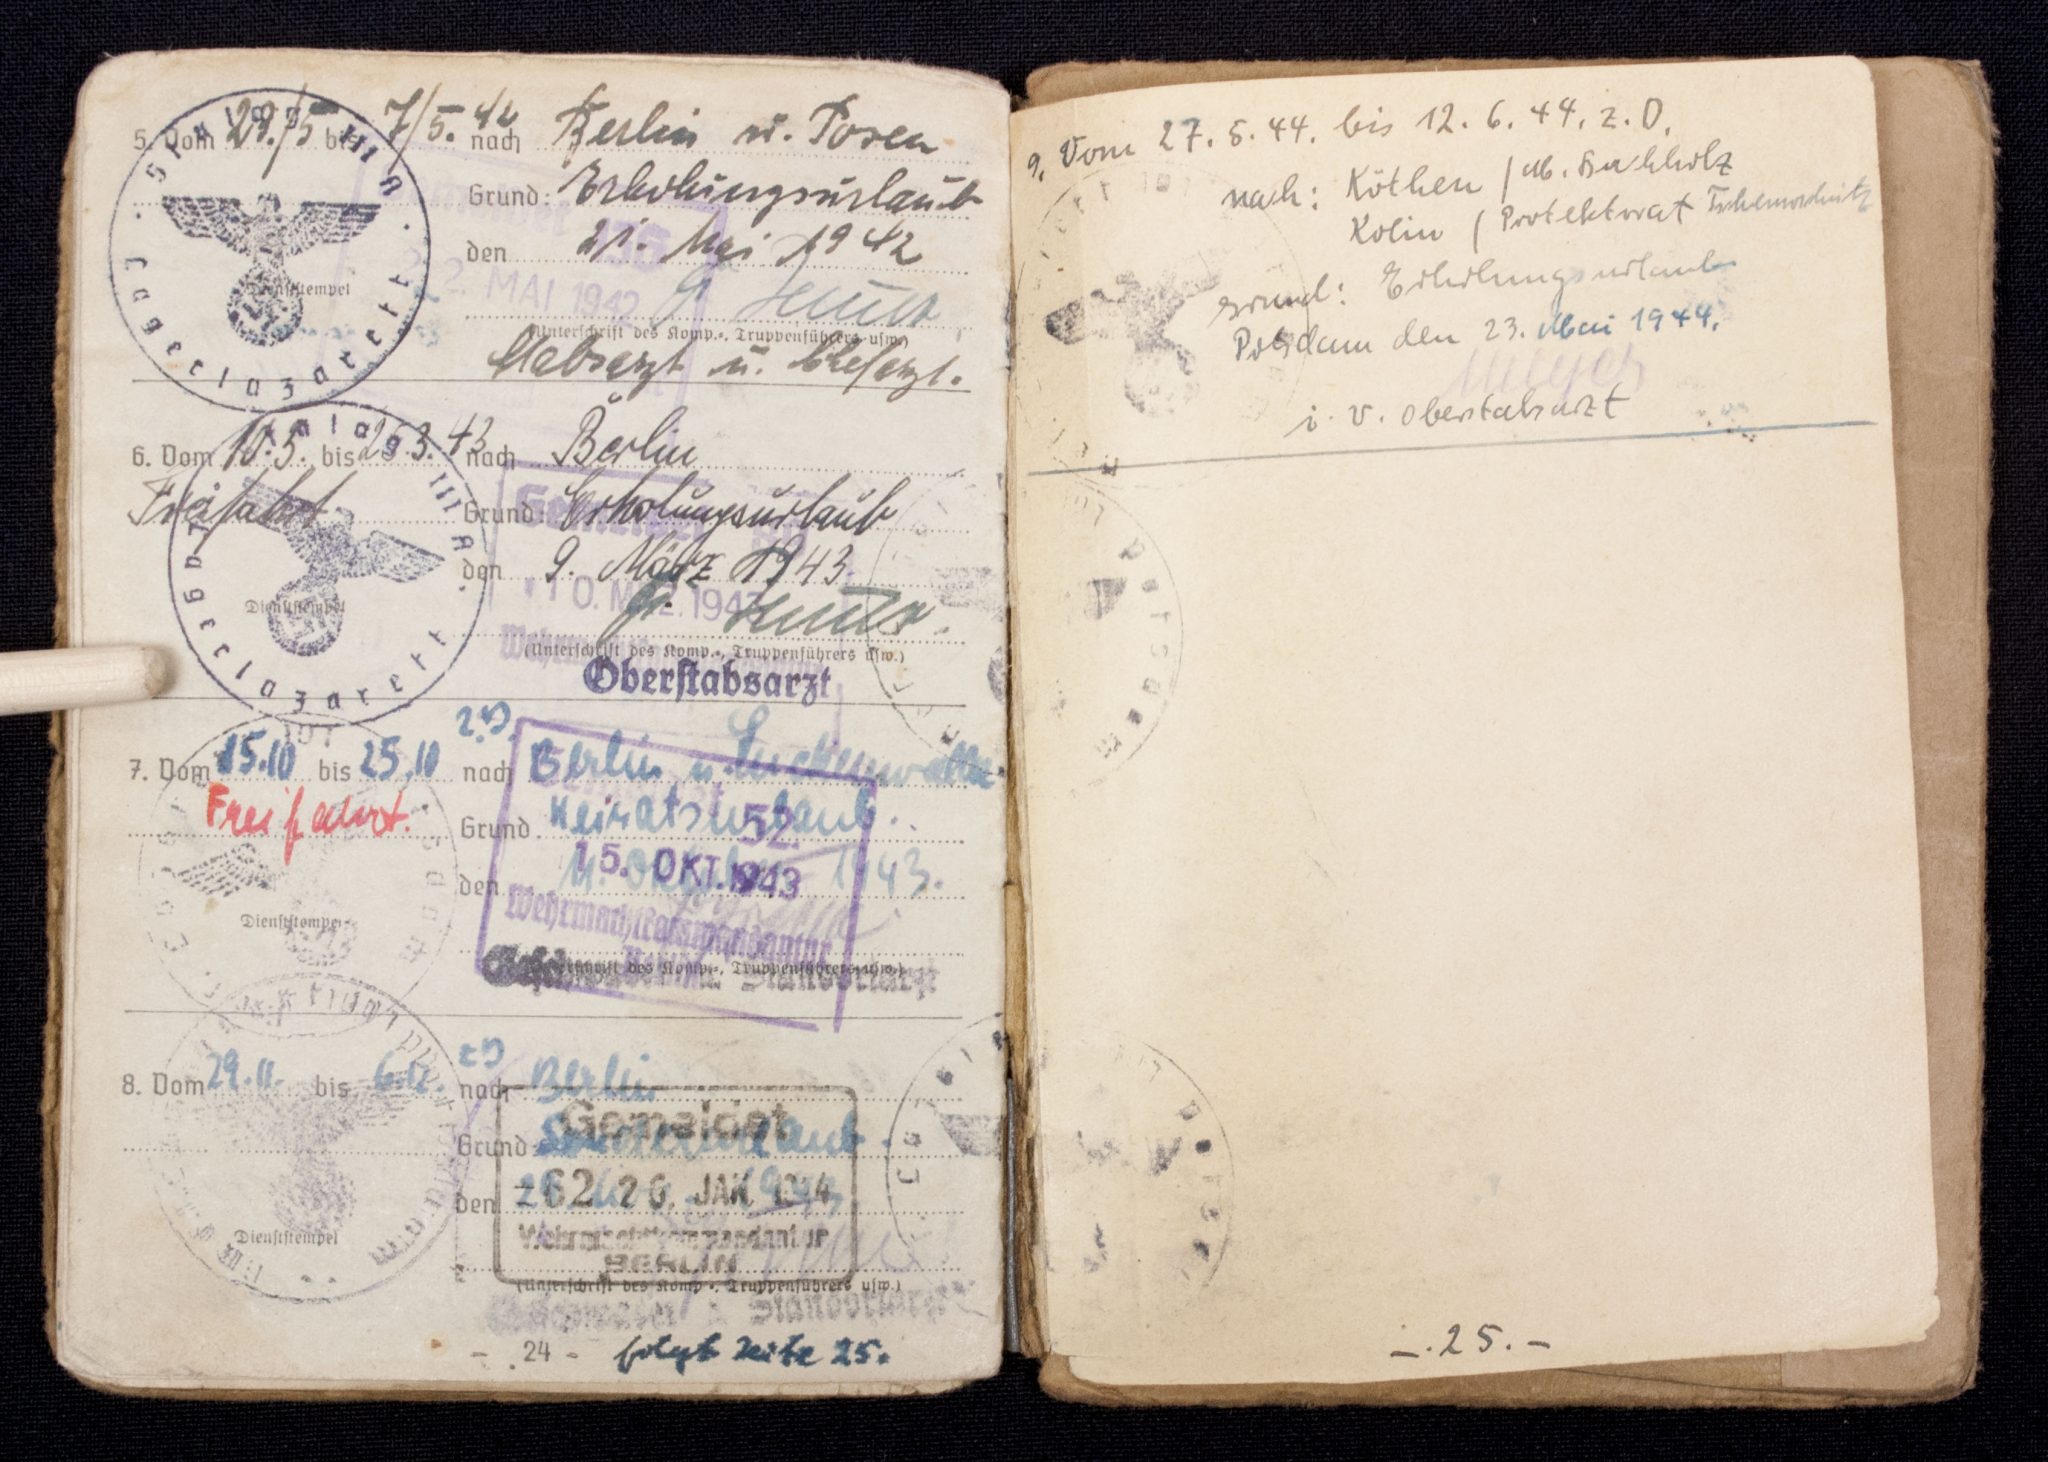 5. Vom 29./5 bis 7/5. 42 nach Berlin u. Posen
Grund: Erholungsurlaub
den 21. Mai 1942
2. MAI 1942
Dienststempel
(Unterschrift des Komp.-, Truppenführers usw.)
Stabsarzt u. Chefarzt.
Stalag III A
Lagerlazarett
6. Vom 10.3. bis 25.3.43 nach Berlin
Freifahrt
Grund: Erholungsurlaub
den 9. März 1943
10. MRZ. 1943
Dienststempel
(Unterschrift des Komp.-, Truppenführers usw.)
Oberstabsarzt
Stalag III A.
Lagerlazarett
z.D.
7. Vom 15.10 bis 25.10 nach Berlin u. Luckenwalde
Freifahrt.
Grund Heiratsurlaub.
52.
den 11. Oktober 1943.
15. OKT. 1943
Wehrmachtkommandantur
Berlin
Dienststempel
(Unterschrift des Komp.-, Truppenführers usw.)
Standortarzt
zD
8. Vom 29.11. bis 6.12. nach Berlin
Gemeldet
Grund Sonderurlaub.
den
62 26. JAN. 1944
Wehrmachtkommandantur
BERLIN
Dienststempel
(Unterschrift des Komp.-, Truppenführers usw.)
Standortarzt
- 24 - folgt Seite 25.
9. Vom 27.5.44. bis 12.6.44. z.D.
nach: Köthen / Mb. Buchholz
Kolin / Protektorat
Grund: Erholungsurlaub
Potsdam den 23. Mai 1944.
i.V. Oberstabsarzt
Potsdam
-.25.-